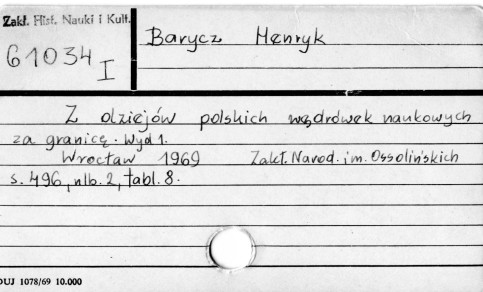 Zakł. Hist. Nauki i Kult.
61034 I
Barycz Henryk
Z dziejów polskich wędrówek naukowych
za granicę. Wyd 1.
Wrocław 1969 Zakł. Narod. im. Ossolińskich
s. 496, nlb. 2, tabl. 8.
DUJ 1078/69 10.000